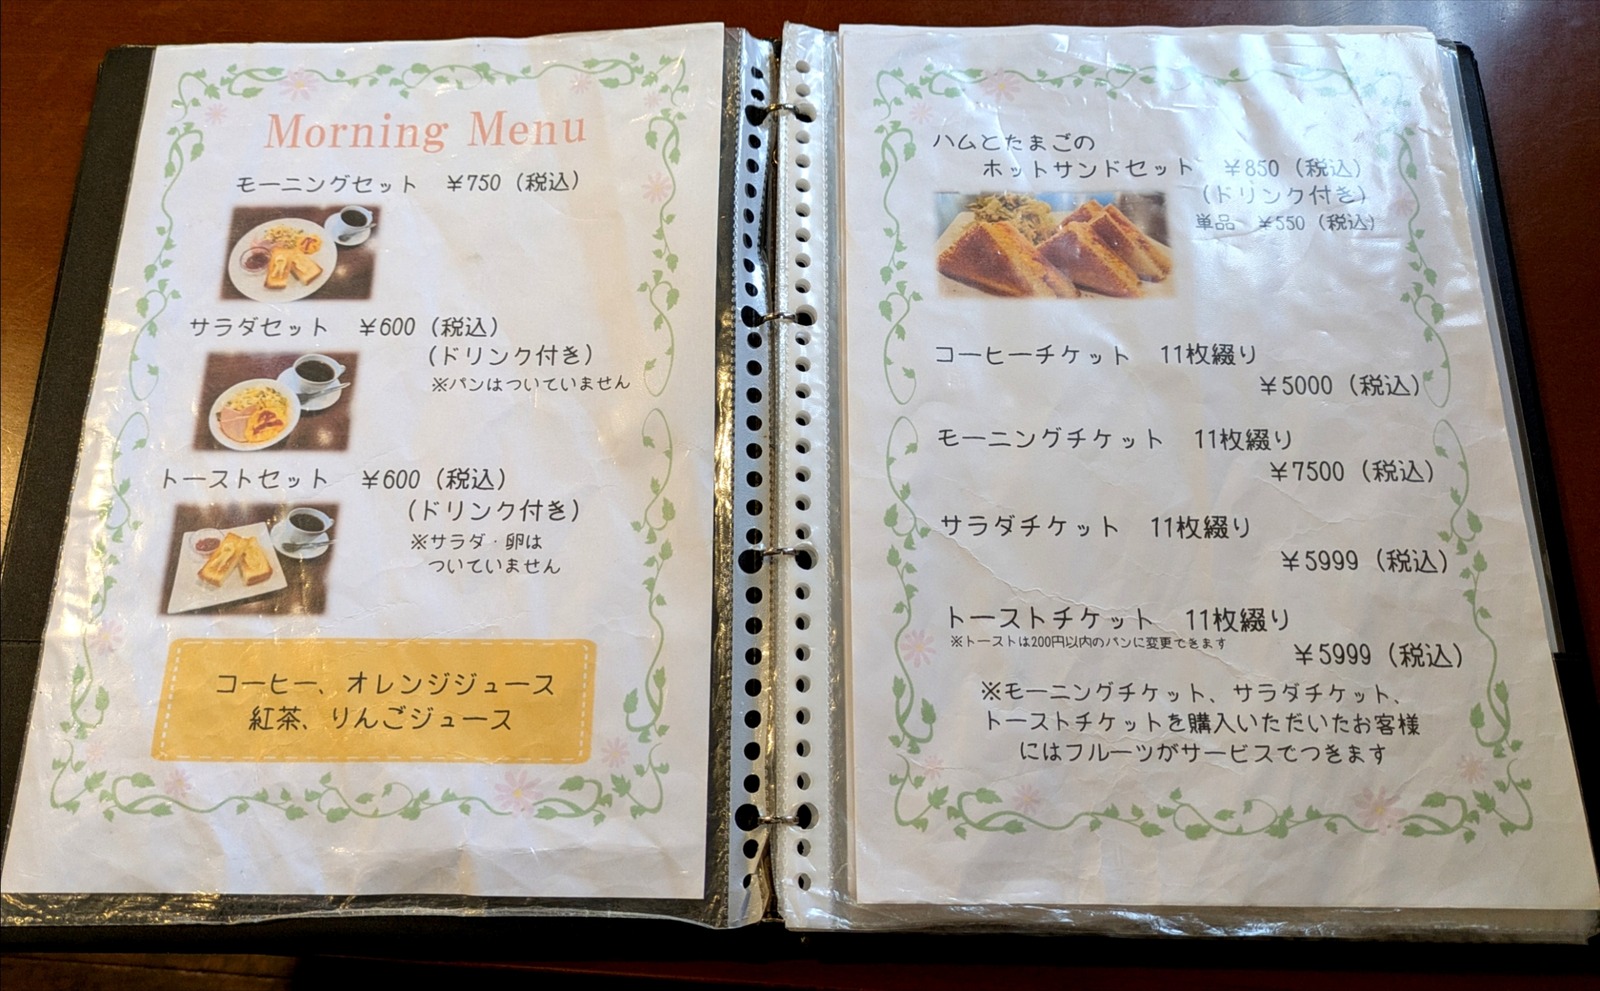 Morning Menu
モーニングセット ￥750（税込）
サラダセット ￥600（税込）
（ドリンク付き）
※パンはついていません
トーストセット ￥600（税込）
（ドリンク付き）
※サラダ・卵は
ついていません
コーヒー、オレンジジュース
紅茶、りんごジュース
ハムとたまごの
ホットサンドセット ￥850（税込）
（ドリンク付き）
単品 ￥550（税込）
コーヒーチケット 11枚綴り
￥5000（税込）
モーニングチケット 11枚綴り
￥7500（税込）
サラダチケット 11枚綴り
￥5999（税込）
トーストチケット 11枚綴り
※トーストは200円以内のパンに変更できます
￥5999（税込）
※モーニングチケット、サラダチケット、
トーストチケットを購入いただいたお客様
にはフルーツがサービスでつきます